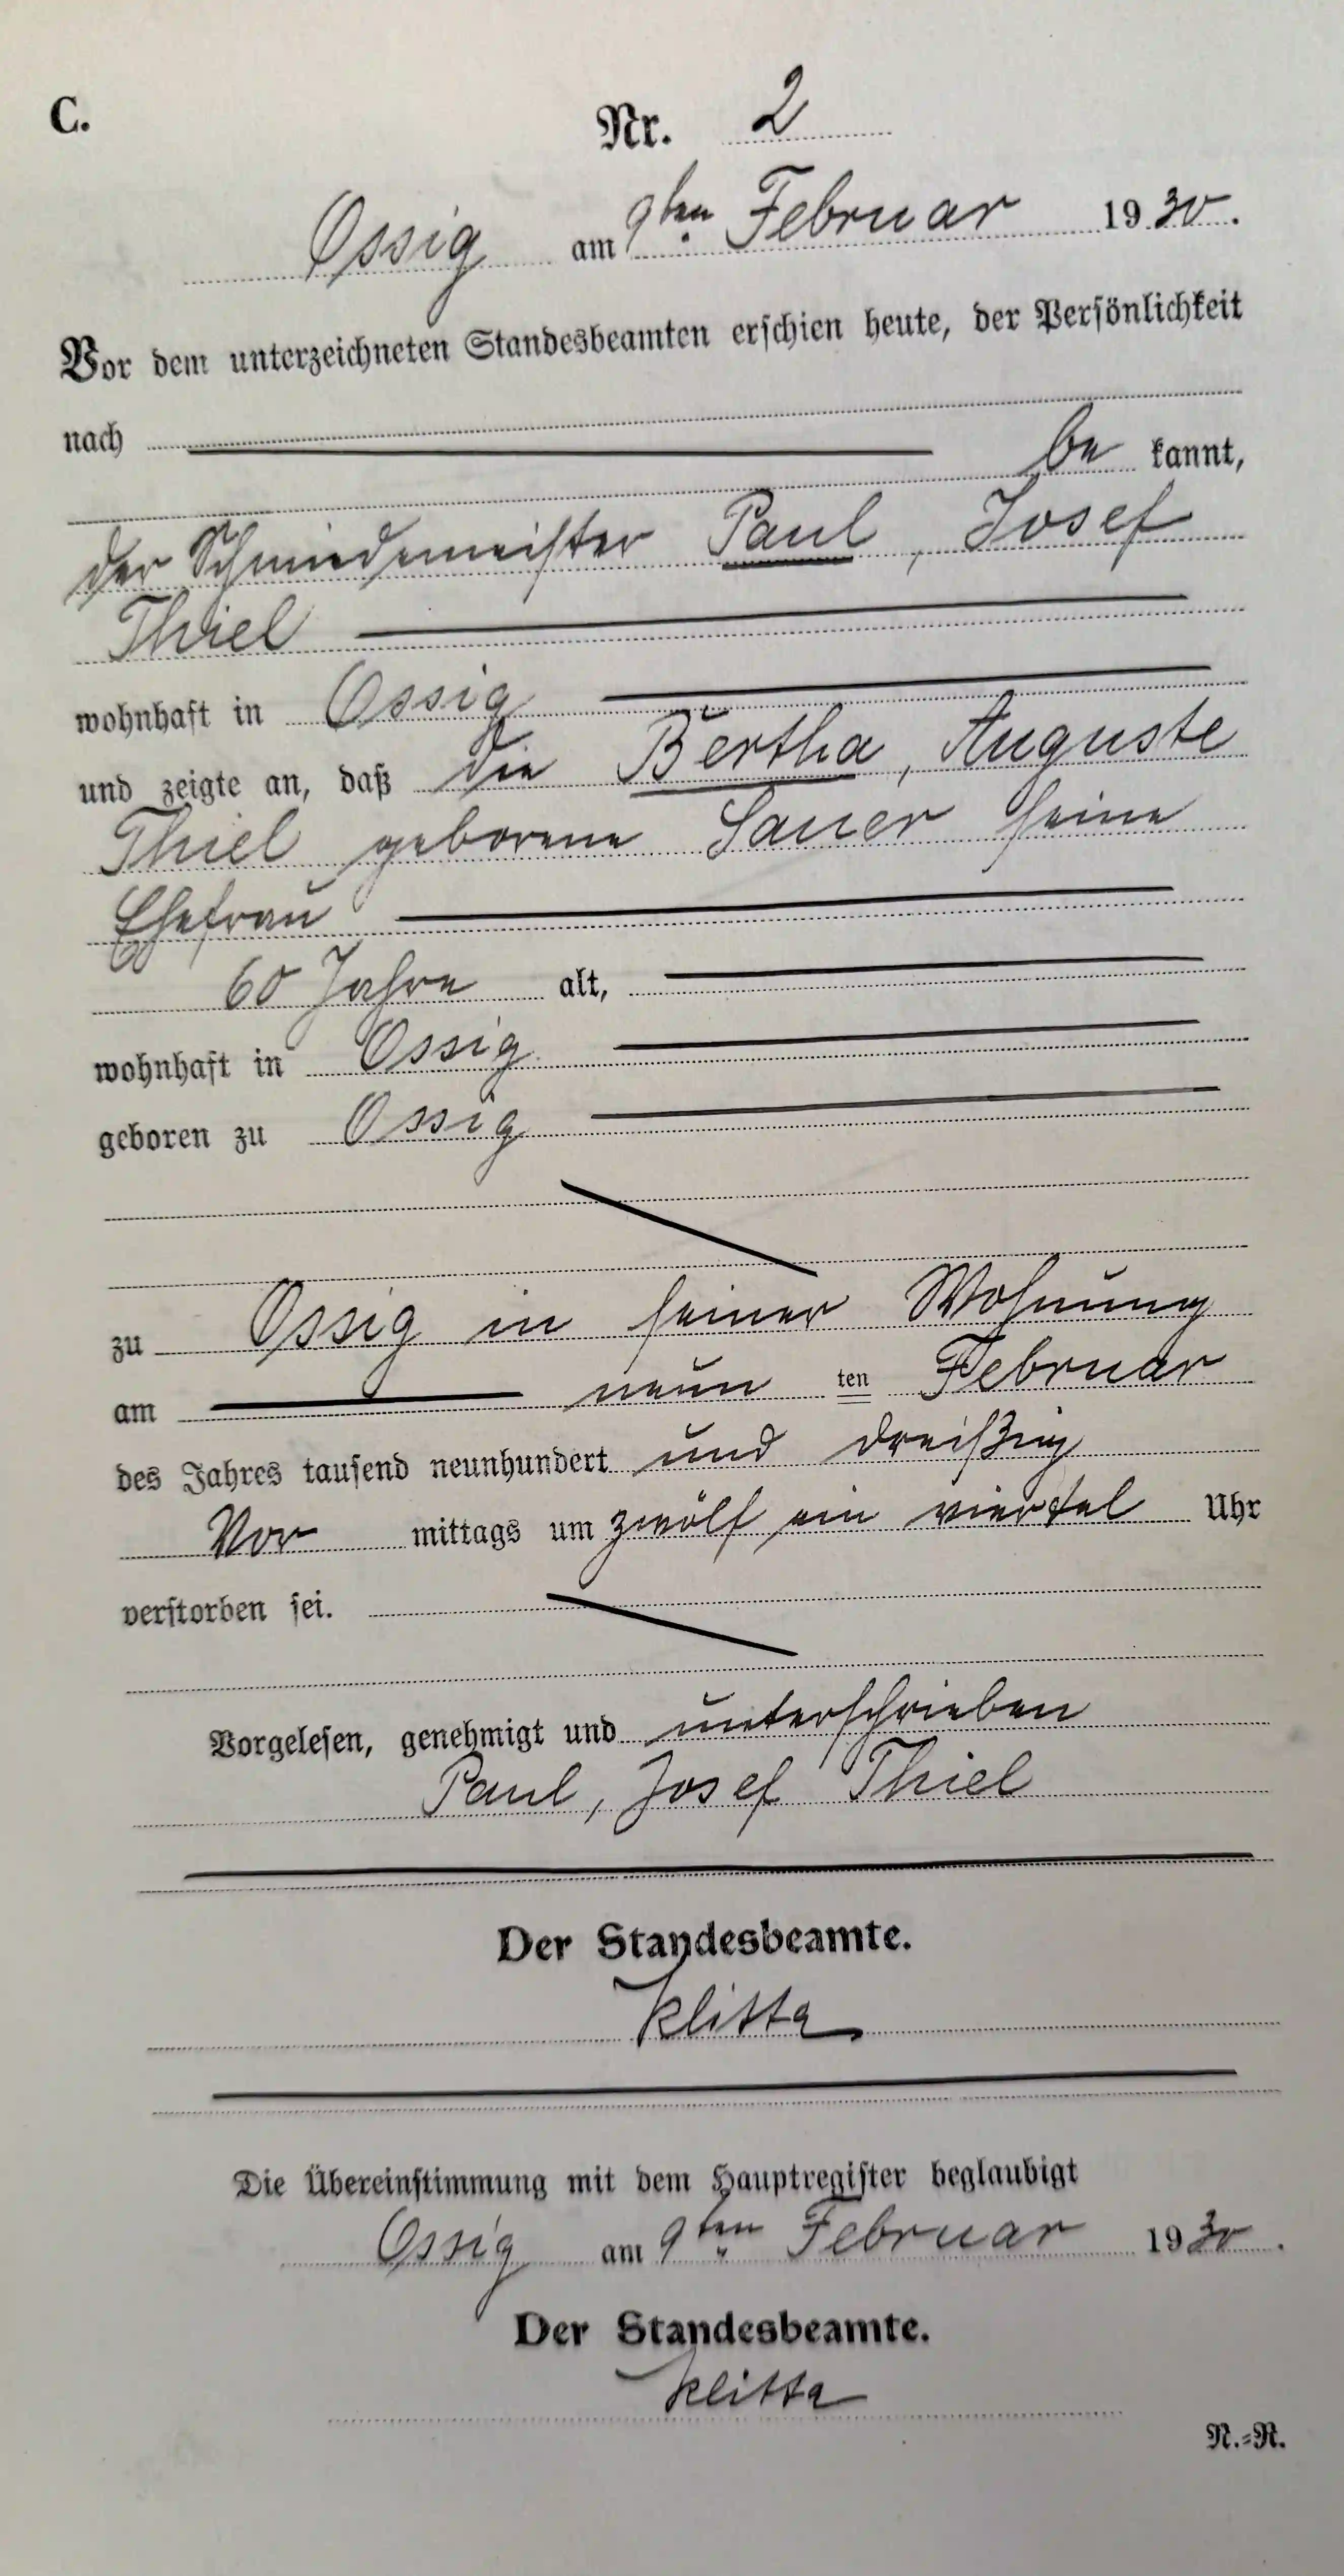 C.
Nr. 2
Ossig am 9ten Februar 1930.
Vor dem unterzeichneten Standesbeamten erschien heute, der Persönlichkeit
nach
be kannt,
der Schmiedemeister Paul, Josef
Thiel
wohnhaft in Ossig
und zeigte an, daß die Bertha, Auguste
Thiel geborene Sauer seine
Ehefrau
60 Jahre alt,
wohnhaft in Ossig
geboren zu Ossig
zu Ossig in seiner Wohnung
am neun ten Februar
des Jahres tausend neunhundert und dreißig
Vor mittags um zwölf ein viertel Uhr
verstorben sei.
Vorgelesen, genehmigt und unterschrieben
Paul, Josef Thiel
Der Standesbeamte.
Klitta
Die Übereinstimmung mit dem Hauptregister beglaubigt
Ossig am 9ten Februar 1930.
Der Standesbeamte.
Klitta
N.=R.